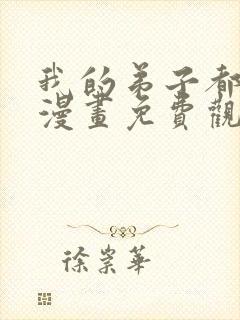 我的弟子都
漫畫免費觀
徐崇華